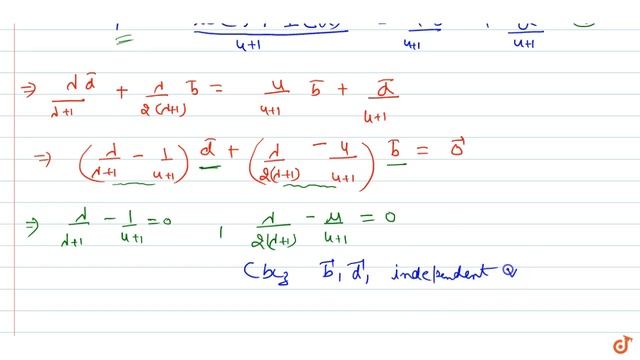 u+1 u+1 u+1
⇒ λd̄/λ+1 + λ/2(λ+1) b̄ = u/u+1 b̄ + d̄/u+1
⇒ (λ/λ+1 - 1/u+1) d̄ + (λ/2(λ+1) - u/u+1) b̄ = 0⃗
⇒ λ/λ+1 - 1/u+1 = 0 , λ/2(λ+1) - u/u+1 = 0
(bcz b⃗, d⃗, independent